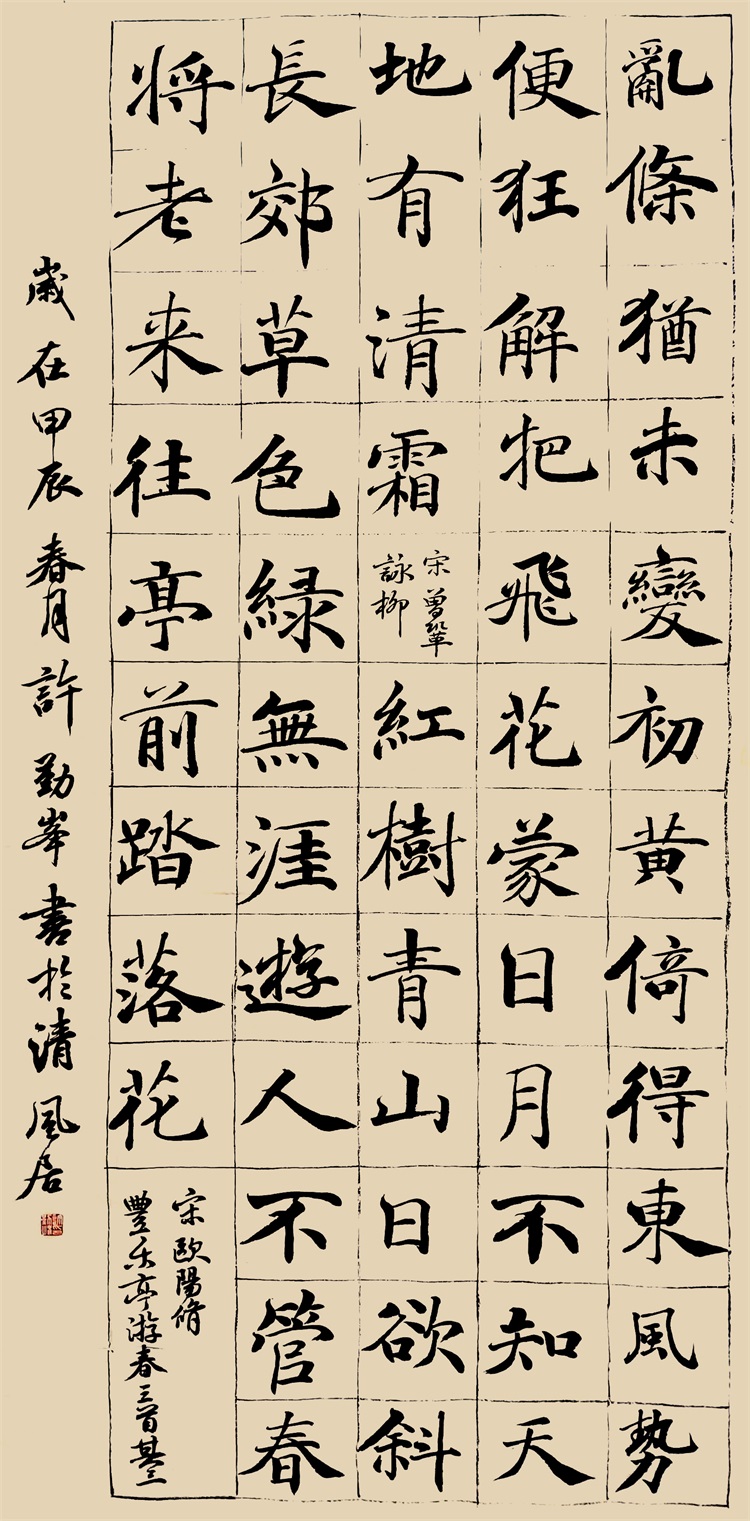 亂條猶未變初黃倚得東風勢
便狂解把飛花蒙日月不知天
地有清霜
宋曾鞏
詠柳
紅樹青山日欲斜
長郊草色緑無涯遊人不管春
将老来往亭前踏落花
宋歐陽脩
豐乐亭游春三首其三
歲在甲辰春月許勤峯書於清風居